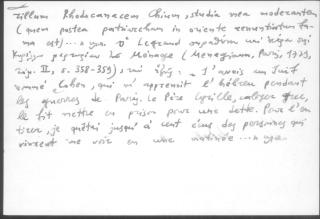 zillum Rhodocanacem Chium, studia mea moderantem
(quem postea patriarcham in oriente renuntiatum fa-
ma est)... »
Legrand
Ménage (Menagiana, Paris, 1729,
II, σ. 358-359), « J'avais un Juif
nommé Cohen, qui m'apprenoit l'hébreu pendant
les guerres de Paris. Le Père Cyrille, caloyer Grec,
le fit mettre en prison pour une dette. Pour l'en
tirer, je quêtai jusqu'à cent écus des personnes qui
vinrent me voir en une matinée...»